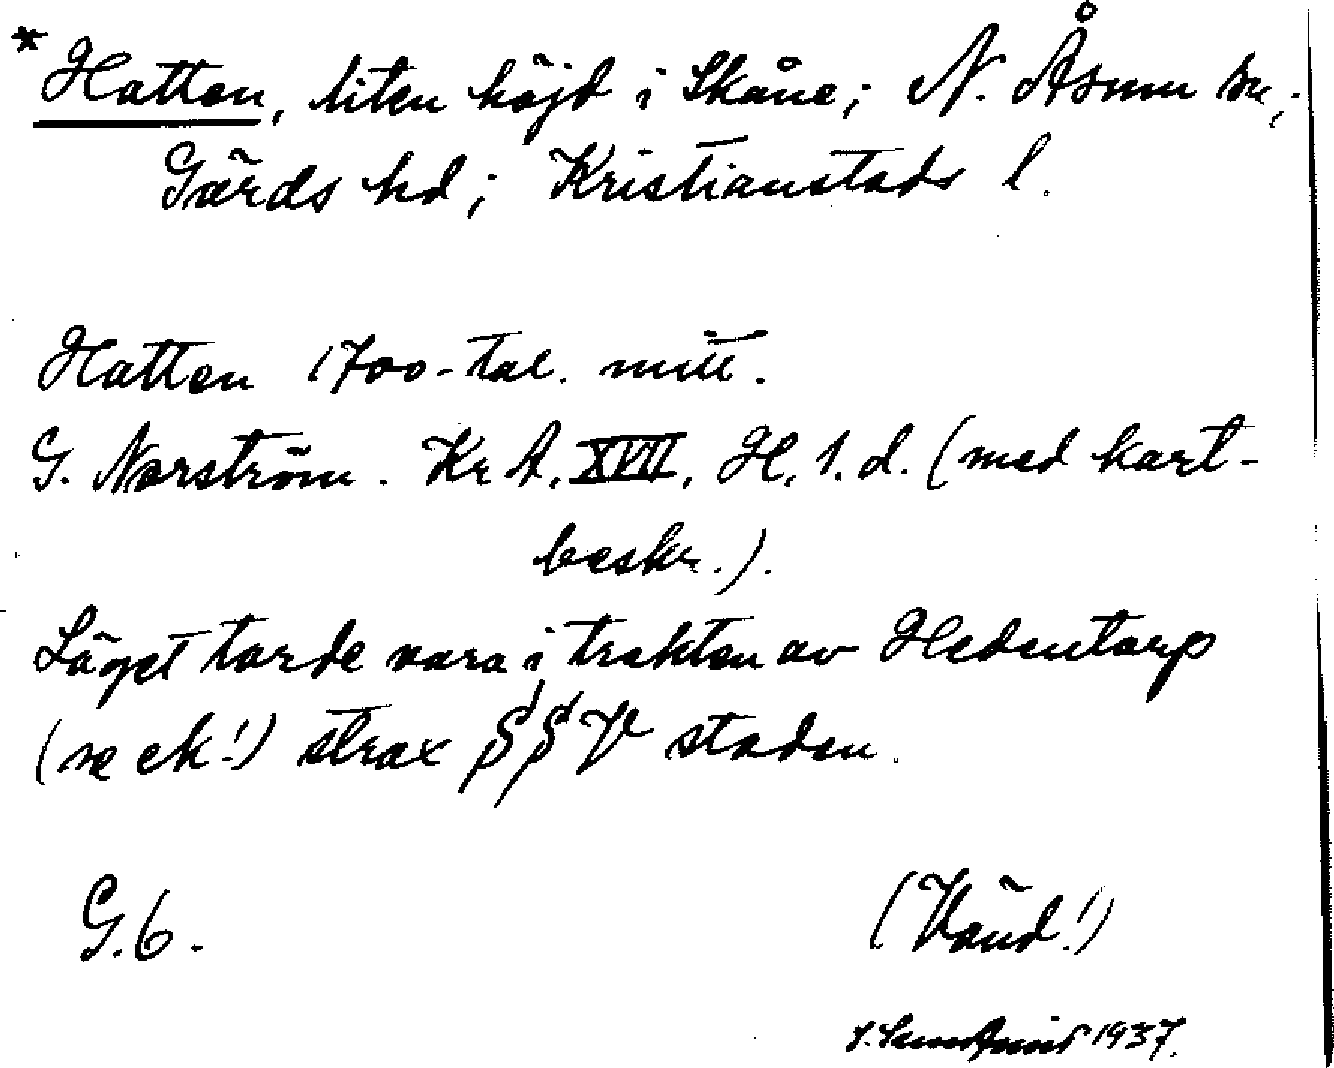 * Hatten, liten höjd i Skåne; N. Åsum sn,;
Gärds hd; Kristianstads l.
Hatten 1700-tal. mitt.
G. Norström. Kr A. XVII, H. 1. d. (med kart-
beskr.).
Läget torde vara i trakten av Hedentorp
(se ek!) strax SSV staden.
G. 6.
(Vänd!)
1937.